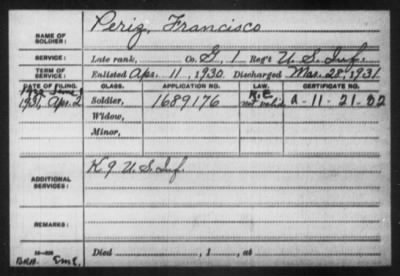 NAME OF SOLDIER: Periz, Francisco
SERVICE: Late rank, Co. G, 1 Reg't U.S. Inf.
TERM OF SERVICE: Enlisted Apr. 11, 1930. Discharged Mar. 28, 1931.
DATE OF FILING. CLASS. APPLICATION NO. LAW. CERTIFICATE NO.
1931, Apr. 2 Soldier, 1689176 A-11-21-32
Widow,
Minor,
ADDITIONAL SERVICES: K. 9 U.S. Inf.
REMARKS:
Died , 1 , at